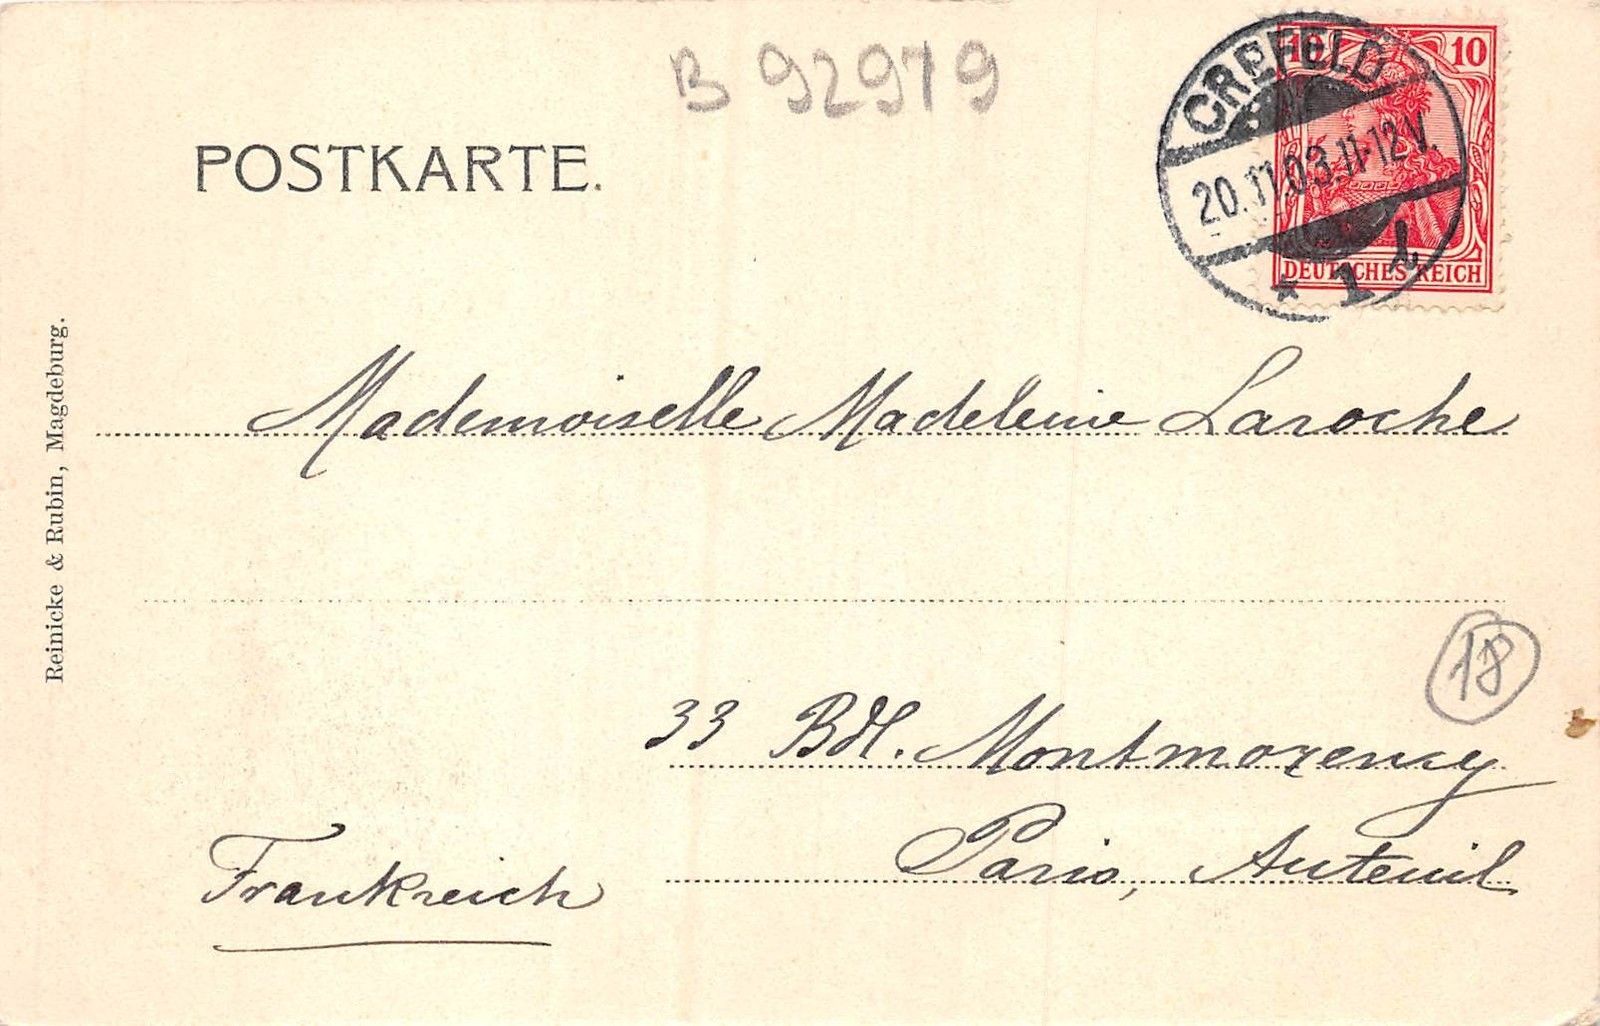 B 92979
POSTKARTE.
10 10
DEUTSCHES REICH
CREFELD
20.11.03.11-12V.
* 1 l
Mademoiselle Madeleine Laroche
33 Bdl. Montmorency
Paris, Auteuil
Frankreich
18
Reinicke & Rubin, Magdeburg.